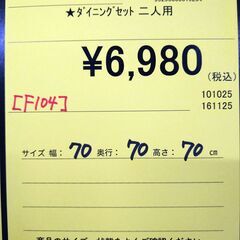 ★ダイニングセット 二人用
¥6,980
(税込)
[F104]
101025
161125
サイズ 幅: 70 奥行: 70 高さ: 70 cm